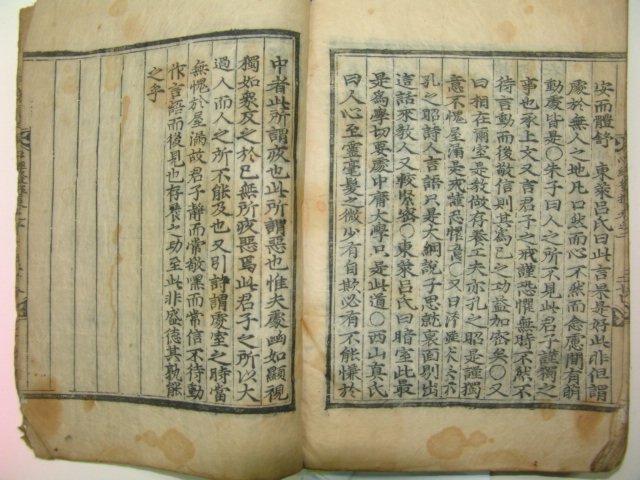 安而體舒　東萊呂氏曰此言果是好此非但謂
處於無人之地凡口然而心不然而念慮間有萌
動處皆是○朱子曰人之所不見此君子謹獨之
事也承上文又言君子之戒謹恐懼無時不然不
待言動而後敬信則其爲己之功益加密矣○又
曰相在爾室是敎做存養工夫亦孔之昭是謹獨
意不愧屋漏是戒謹恐懼意○又曰潛雖伏矣亦
孔之昭詩人言語只是大綱說子思就裏面剔出
這話來敎人又較緊密○東萊呂氏曰暗室此最
是爲學切要處中庸大學只是此道○西山眞氏
曰人心至靈毫髮之微少有自欺必有不能慊於
中者此所謂疚也此所謂惡也惟夫處幽如顯視
獨如衆反之於己無所疚惡焉此君子之所以大
過人而人之所不能及也又引詩謂處室之時當
無愧於屋漏故君子靜而常敬嘿而常信不待動
作言語而後見也存養之功至此非盛德其孰能
之乎